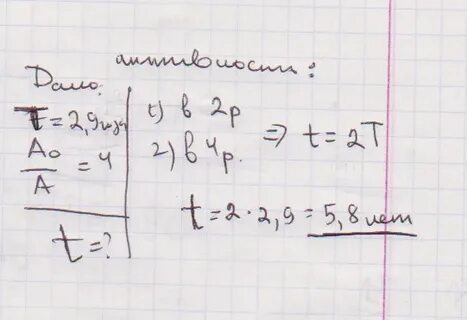 активности:
Дано:
T = 2,9 года
A₀/A = 4
t = ?
1) в 2 р
2) в 4 р.
⇒ t = 2T
t = 2 · 2,9 = 5,8 лет